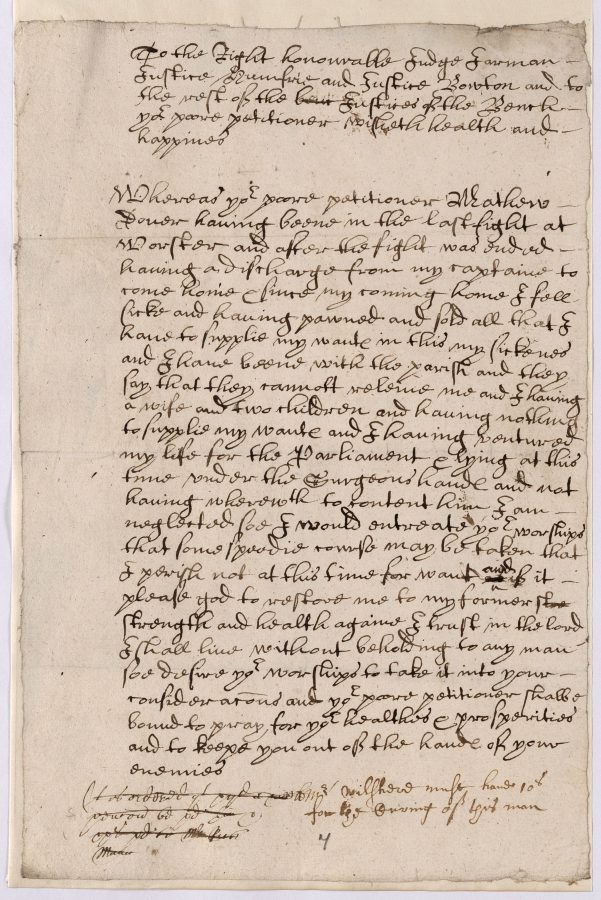 To the Right honourable Judge Jarman
Justice Numfrie and Justice Bowton and to
the rest of the Justices of the Bench
yor poore petitioner wisheth health and
happines
Whereas yor poore petitioner Mathew
Doner having beene in the last fight at
Worster and after the fight was ended
having a discharge from my captaine to
come home & since my coming home I fell
sicke and having pawned and sold all that I
have to supplie my wants in this my sickenes
and I have beene with the parish and they
say that they cannott releive me and I having
a wife and two children and having nothing
to supplie my wants and I having ventured
my life for the Parliament & lying at this
time under the Surgeons hands and not
having wherewth to content him I am
neglected soe I would entreate yor worships
that some speedie course may be taken that
I perish not at this time for want and if it
please god to restore me to my former stre
strength and health againe I trust in the lord
I shall live without beholding to any man
soe desire yor worships to take it into your
consideracons and yor poore petitioner shalbe
bound to pray for yor healthes & prosperities
and to keepe you out of the hands of your
enemies
It is ordered
Mr Wilshere must have 10s
for the Curing of this man
4